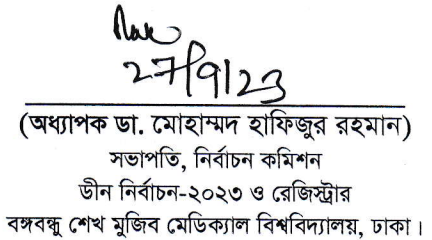 27/9/23
(অধ্যাপক ডা. মোহাম্মদ হাফিজুর রহমান)
সভাপতি, নির্বাচন কমিশন
ডীন নির্বাচন-২০২৩ ও রেজিস্ট্রার
বঙ্গবন্ধু শেখ মুজিব মেডিক্যাল বিশ্ববিদ্যালয়, ঢাকা।